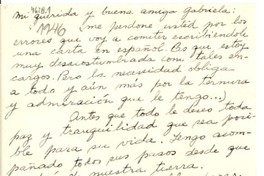 Mi querida y buena amiga Gabriela:
1946 ¡me perdone usted por los
errores que voy a cometer escribiéndole
una carta en español. Es que estoy
muy desacostumbrada con tales en-
cargos. Pero la necesidad obliga
a todo y aún más por la ternura
y admiración que le tengo...)
Antes que todo le deseo toda
paz y tranquilidad que sea posi-
ble para su vida. Tengo acom-
pañado todos sus pasos desde que
nuestra tierra.